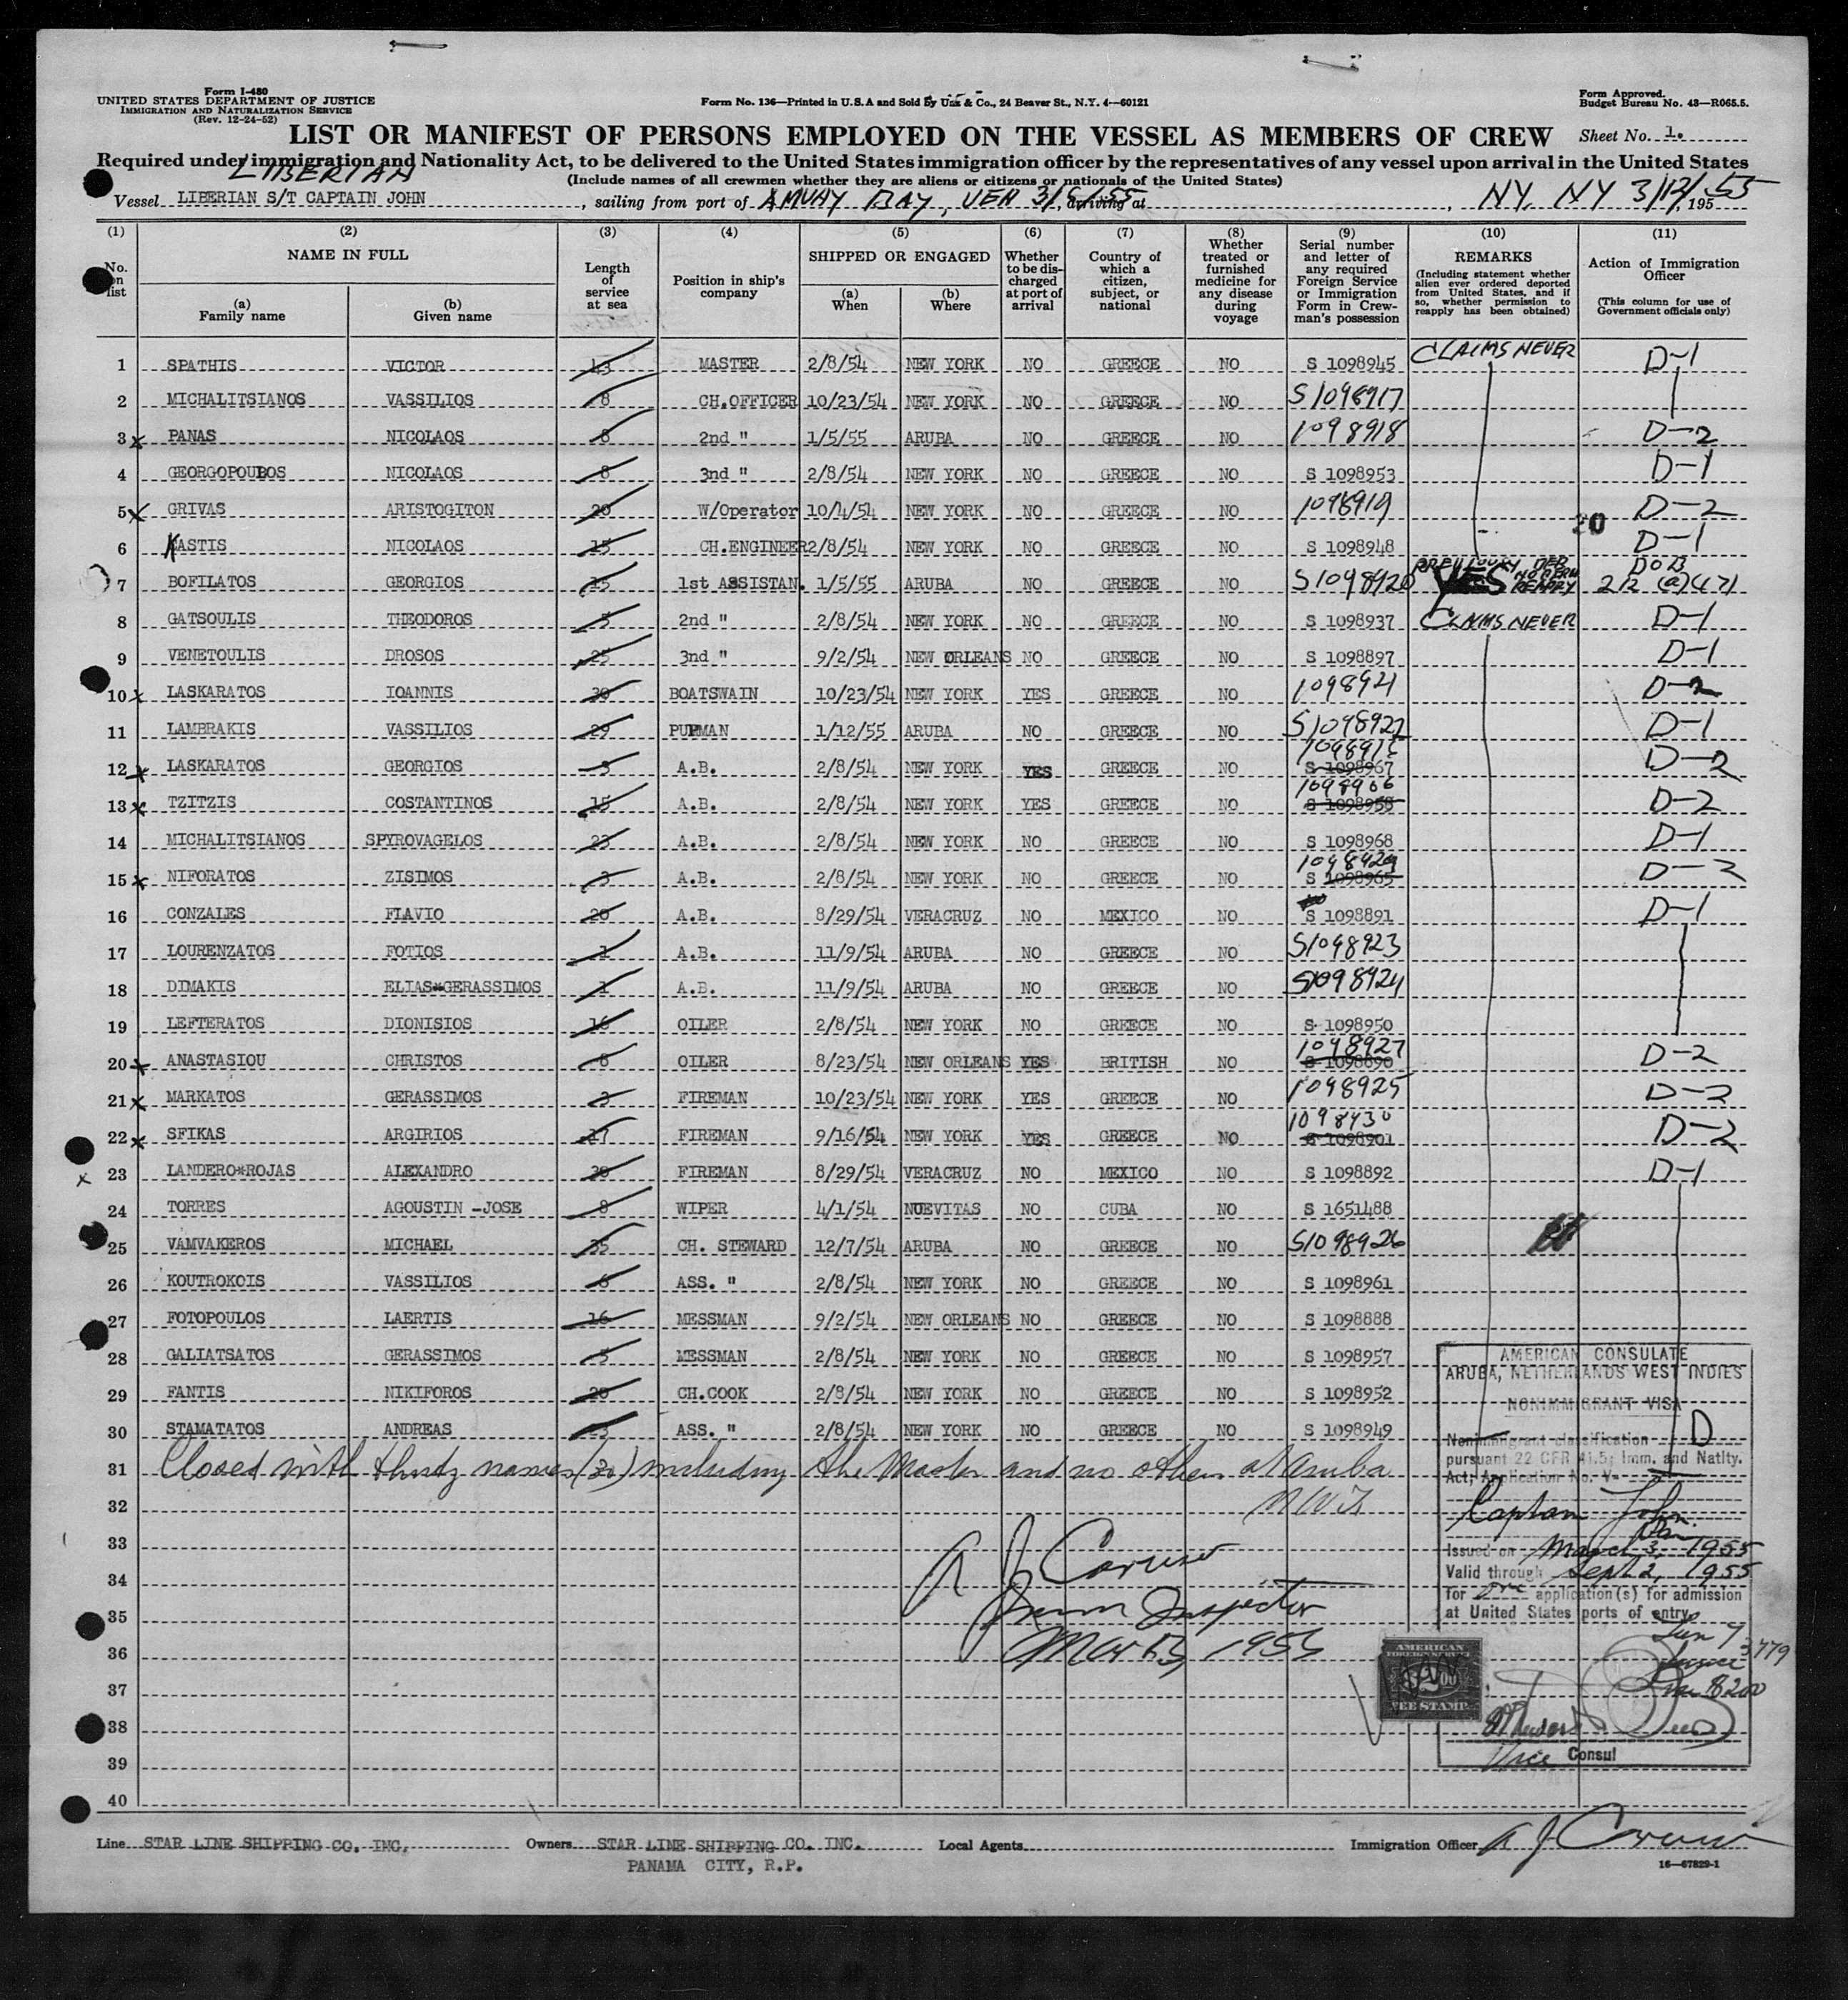 Form I-480
UNITED STATES DEPARTMENT OF JUSTICE
IMMIGRATION AND NATURALIZATION SERVICE
(Rev. 12-24-52)
Form No. 136—Printed in U.S.A and Sold By Unz & Co., 24 Beaver St., N.Y. 4—60121
Form Approved.
Budget Bureau No. 43—R065.5.
LIST OR MANIFEST OF PERSONS EMPLOYED ON THE VESSEL AS MEMBERS OF CREW
Sheet No. 1.
Required under immigration and Nationality Act, to be delivered to the United States immigration officer by the representatives of any vessel upon arrival in the United States
LIBERIAN
(Include names of all crewmen whether they are aliens or citizens or nationals of the United States)
Vessel LIBERIAN S/T CAPTAIN JOHN, sailing from port of AMUAY BAY, VEN 3/5/55, arriving at NY, NY 3/12/, 1955
(1) (2) (3) (4) (5) (6) (7) (8) (9) (10) (11)
No. on list
NAME IN FULL
(a) Family name
(b) Given name
Length of service at sea
Position in ship's company
SHIPPED OR ENGAGED
(a) When
(b) Where
Whether to be discharged at port of arrival
Country of which a citizen, subject, or national
Whether treated or furnished medicine for any disease during voyage
Serial number and letter of any required Foreign Service or Immigration Form in Crewman's possession
REMARKS
(Including statement whether alien ever ordered deported from United States, and if so, whether permission to reapply has been obtained)
Action of Immigration Officer
(This column for use of Government officials only)
1 SPATHIS VICTOR 13 MASTER 2/8/54 NEW YORK NO GREECE NO S 1098945 CLAIMS NEVER D-1
2 MICHALITSIANOS VASSILIOS 8 CH.OFFICER 10/23/54 NEW YORK NO GREECE NO S1098917
3 x PANAS NICOLAOS 8 2nd " 1/5/55 ARUBA NO GREECE NO 1098918 D-2
4 GEORGOPOULOS NICOLAOS 8 3nd " 2/8/54 NEW YORK NO GREECE NO S 1098953 D-1
5 x GRIVAS ARISTOGITON 20 W/Operator 10/4/54 NEW YORK NO GREECE NO 1098919 D-2
20
6 KASTIS NICOLAOS 15 CH.ENGINEER 2/8/54 NEW YORK NO GREECE NO S 1098948 D-1
7 BOFILATOS GEORGIOS 15 1st ASSISTAN. 1/5/55 ARUBA NO GREECE NO S1098920 PREVIOUSLY DEP YES NO PERM REAPPLY DOB 212 (a)(17)
8 GATSOULIS THEODOROS 5 2nd " 2/8/54 NEW YORK NO GREECE NO S 1098937 CLAIMS NEVER D-1
9 VENETOULIS DROSOS 25 3nd " 9/2/54 NEW ORLEANS NO GREECE NO S 1098897 D-1
10 x LASKARATOS IOANNIS 30 BOATSWAIN 10/23/54 NEW YORK YES GREECE NO 1098921 D-2
11 LAMBRAKIS VASSILIOS 29 PUPMAN 1/12/55 ARUBA NO GREECE NO S1098922 D-1
12 x LASKARATOS GEORGIOS 3 A.B. 2/8/54 NEW YORK YES GREECE NO S 1098967 D-2
13 x TZITZIS COSTANTINOS 15 A.B. 2/8/54 NEW YORK YES GREECE NO 1098906 S 1098958 D-2
14 MICHALITSIANOS SPYROVAGELOS 23 A.B. 2/8/54 NEW YORK NO GREECE NO S 1098968 D-1
15 x NIFORATOS ZISIMOS 3 A.B. 2/8/54 NEW YORK NO GREECE NO 1098929 S 1098965 D-2
16 CONZALES FLAVIO 20 A.B. 8/29/54 VERACRUZ NO MEXICO NO S 1098891 D-1
17 LOURENZATOS FOTIOS 1 A.B. 11/9/54 ARUBA NO GREECE NO S1098923
18 DIMAKIS ELIAS*GERASSIMOS 1 A.B. 11/9/54 ARUBA NO GREECE NO S1098924
19 LEFTERATOS DIONISIOS 16 OILER 2/8/54 NEW YORK NO GREECE NO S 1098950
20 x ANASTASIOU CHRISTOS 6 OILER 8/23/54 NEW ORLEANS YES BRITISH NO 1098927 S 1098890 D-2
21 x MARKATOS GERASSIMOS 3 FIREMAN 10/23/54 NEW YORK YES GREECE NO 1098925 D-2
22 x SFIKAS ARGIRIOS 17 FIREMAN 9/16/54 NEW YORK YES GREECE NO 1098930 S 1098901 D-2
x 23 LANDERO*ROJAS ALEXANDRO 30 FIREMAN 8/29/54 VERACRUZ NO MEXICO NO S 1098892 D-1
24 TORRES AGOUSTIN -JOSE 8 WIPER 4/1/54 NUEVITAS NO CUBA NO S 1651488
25 VAMVAKEROS MICHAEL 35 CH. STEWARD 12/7/54 ARUBA NO GREECE NO S1098926
26 KOUTROKOIS VASSILIOS 6 ASS. " 2/8/54 NEW YORK NO GREECE NO S 1098961
27 FOTOPOULOS LAERTIS 16 MESSMAN 9/2/54 NEW ORLEANS NO GREECE NO S 1098888
28 GALIATSATOS GERASSIMOS 5 MESSMAN 2/8/54 NEW YORK NO GREECE NO S 1098957
29 FANTIS NIKIFOROS 20 CH.COOK 2/8/54 NEW YORK NO GREECE NO S 1098952
30 STAMATATOS ANDREAS 23 ASS. " 2/8/54 NEW YORK NO GREECE NO S 1098949
31 Closed with thirty names (30) including the Master and no others at Aruba
32 NWI
33 A J Caruso
34
35 Immn Inspector
36 Mar 3, 1955
37
38
39
40
AMERICAN CONSULATE
ARUBA, NETHERLANDS WEST INDIES
NONIMMIGRANT VISA
Nonimmigrant classification D
pursuant 22 CFR 41.5; Imm. and Natlty.
Act; Application No. V-
Captain John
Issued on March 3, 1955
Valid through Sept 2, 1955
for one application(s) for admission
at United States ports of entry.
3779
Vice Consul
AMERICAN
FOREIGN SERVICE
$2.00
FEE STAMP
Line STAR LINE SHIPPING CO. INC.
Owners STAR LINE SHIPPING CO. INC.
PANAMA CITY, R.P.
Local Agents
Immigration Officer A J Caruso
16—67829-1